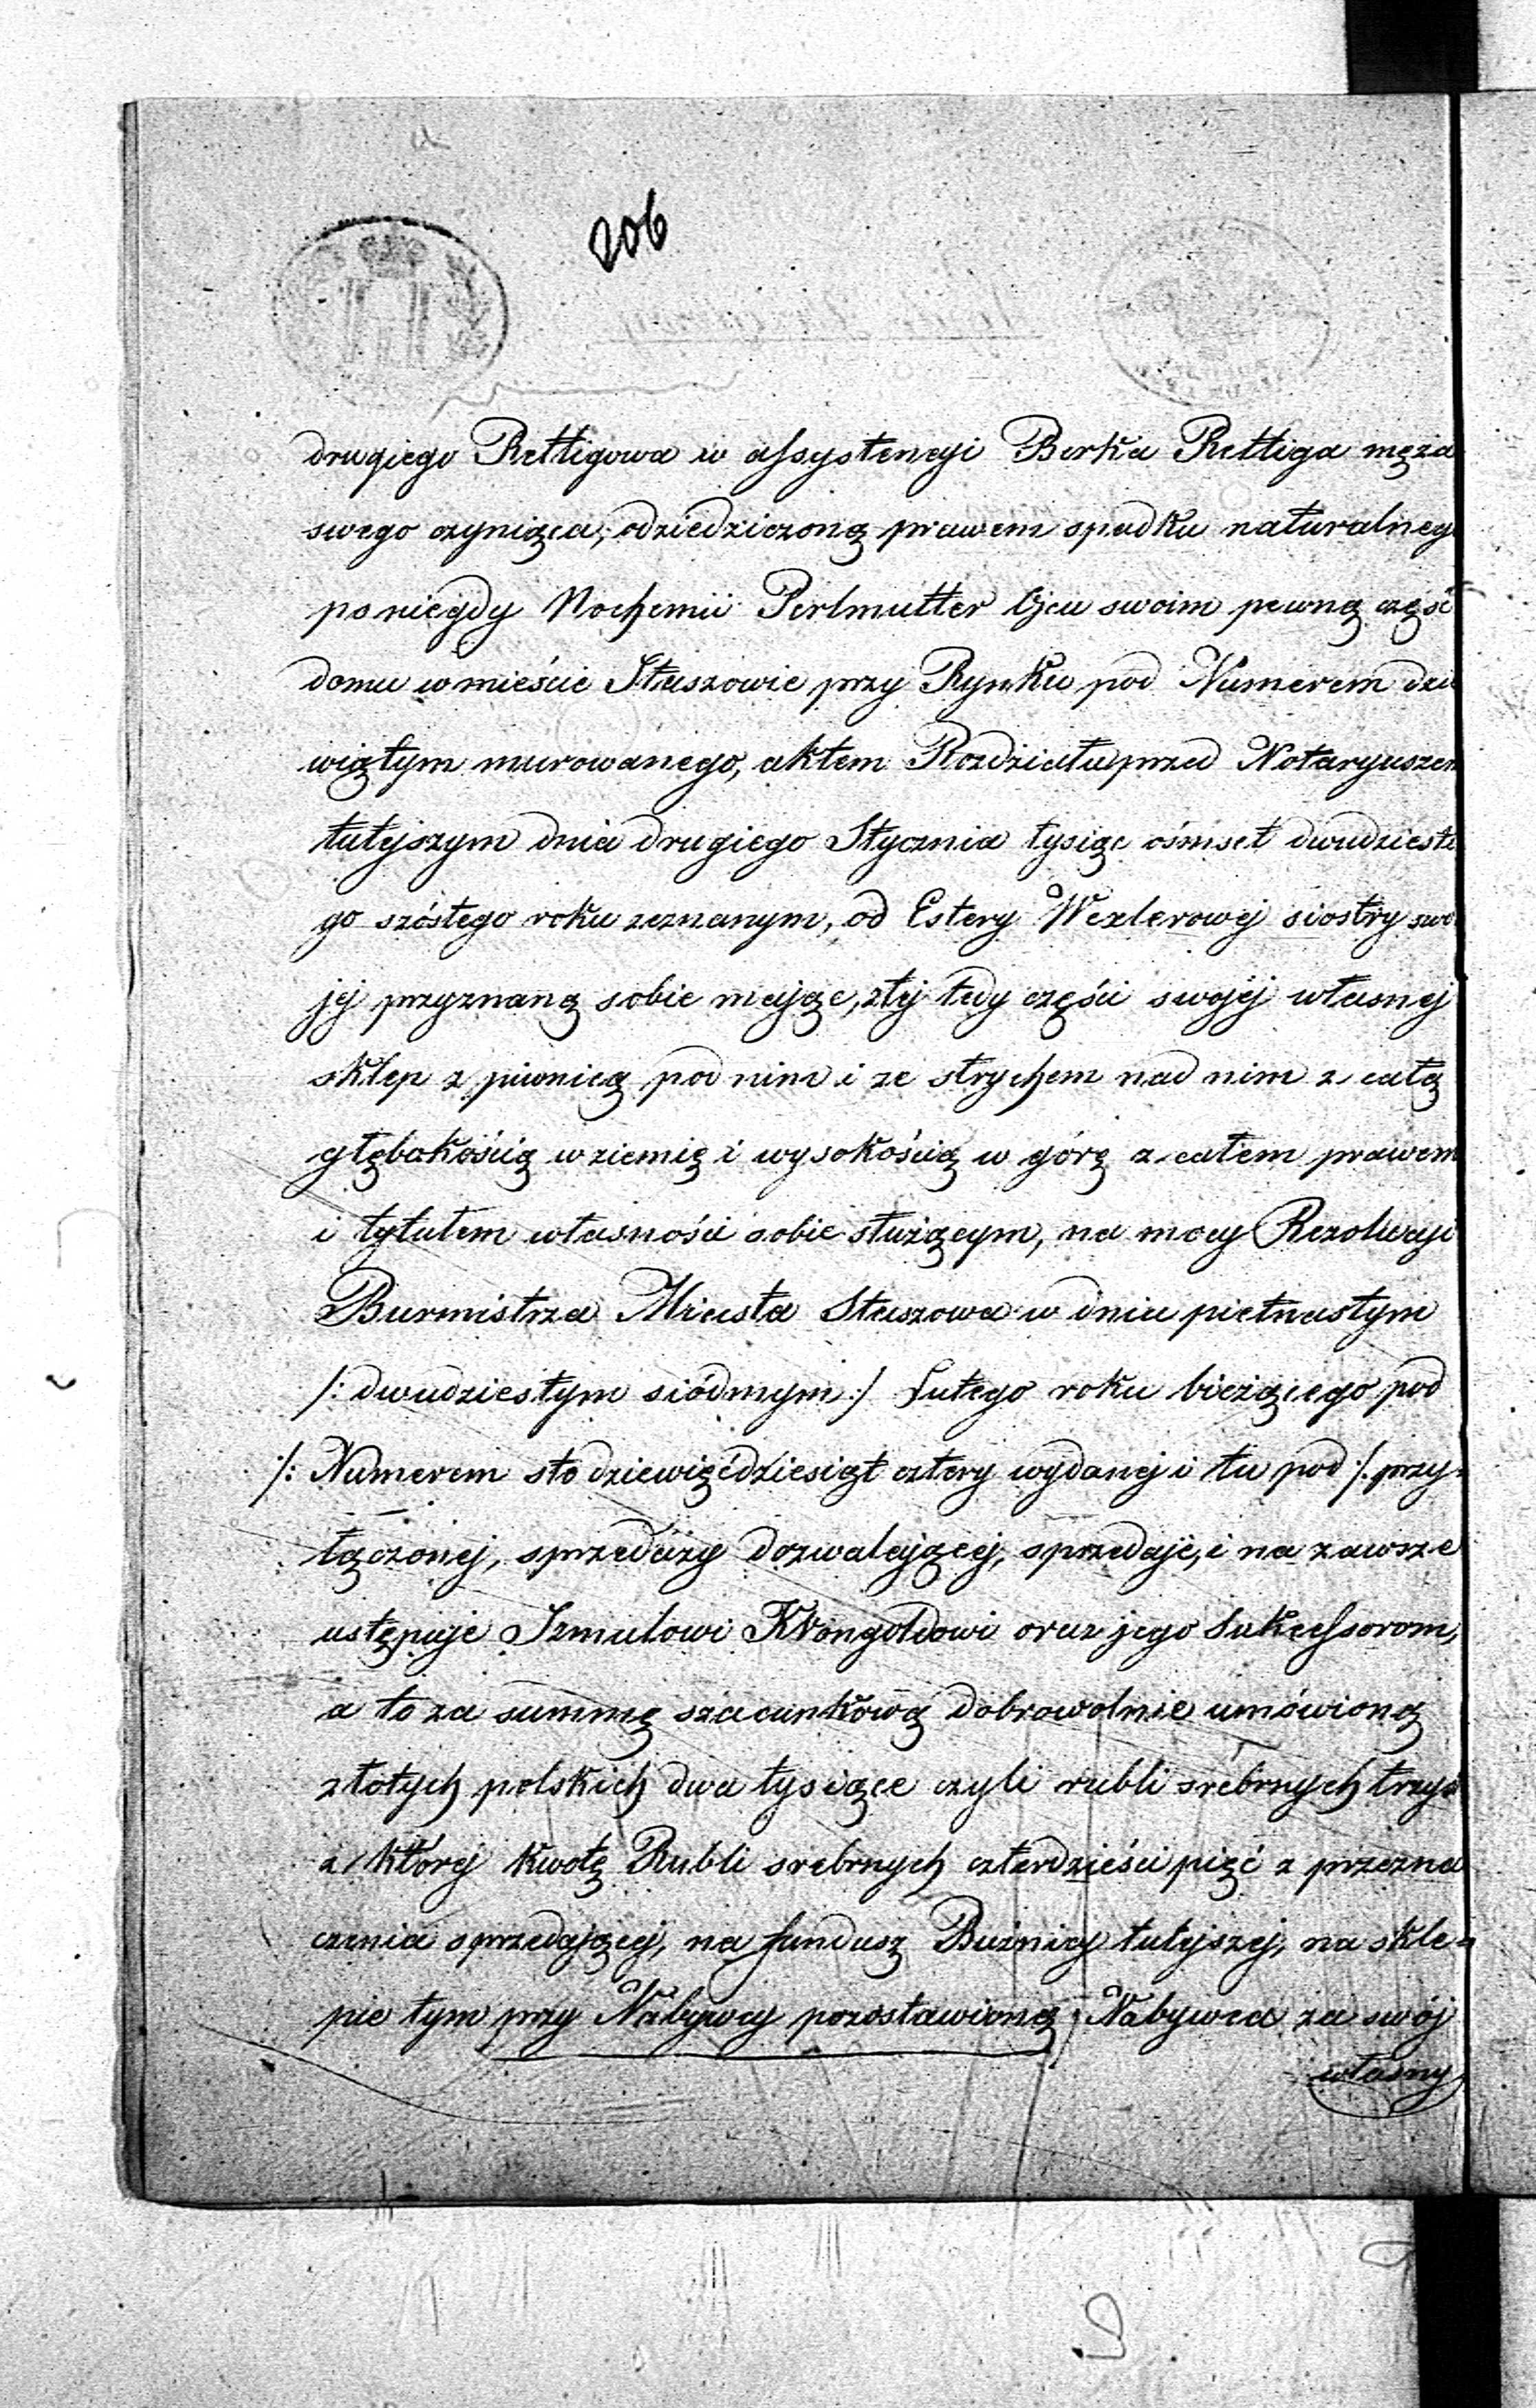 206
drugiego Rettigowa w assystencyi Berka Rettiga męża
swego czyniąca, odziedziczoną prawem spadku naturalneg
po niegdy Nochemii Perlmutter Ojcu swoim pewną część
domu w mieście Staszowie przy Rynku pod Numerem dzie
wiątym murowanego, aktem Rozdziału przed Notaryuszem
tutejszym dnia drugiego Stycznia tysiąc ośmset dwudzieste
go szóstego roku zeznanym, od Estery Wexlerowej siostry swo
jej przyznaną sobie mając, z tej tedy części swojej własnej
sklep z piwnicą pod nim i ze strychem nad nim z całą
głębokością w ziemię i wysokością w górę z całem prawem
i tytułem własności sobie służącym, na mocy Rezolucyi
Burmistrza Miasta Staszowa w dniu piętnastym
/: dwudziestym siódmym :/ Lutego roku bieżącego pod
/: Numerem sto dziewięćdziesiąt cztery wydanej i tu pod /. przy-
łączonej, sprzedaży dozwalającej, sprzedaje, i na zawsze
ustępuje Szmulowi Krongoldowi oraz jego Sukcessorom,
a to za summę szacunkową dobrowolnie umówioną
złotych polskich dwa tysiące czyli rubli srebrnych trzys
z której kwotę Rubli srebrnych czterdzieści pięć z przezna
czenia sprzedającej, na fundusz Bużnicy tutejszej, na skle-
pie tym przy Nabywcy pozostawioną Nabywca za swój
własny